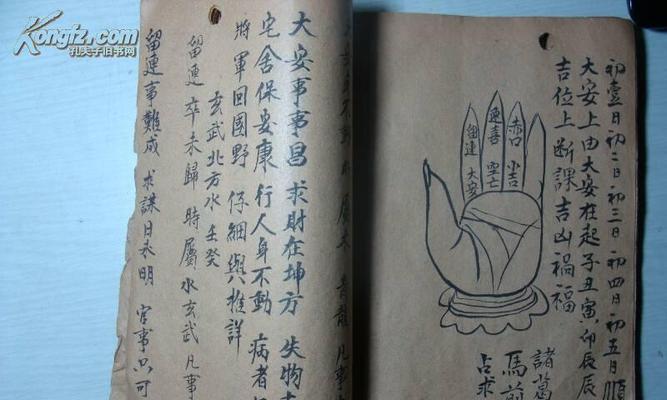 Kongfz.com
孔夫子旧书网
初壹日初二日初三日初四日初五日順
大安上由大安在起子丑寅卯辰辰
吉位上断課吉凶禍福
諸葛
馬前
占求
赤口
小吉
速喜
空亡
留連
大安
身不動
屬木
青龍
凡事
大安事事昌 求財在坤方 失物
宅舍保安康 行人身不動 病者
將軍回國野 仔細與推詳
玄武北方水壬癸
留連 卒未歸 時屬水玄武 凡事
留連事難成 求謀日未明 官事只可